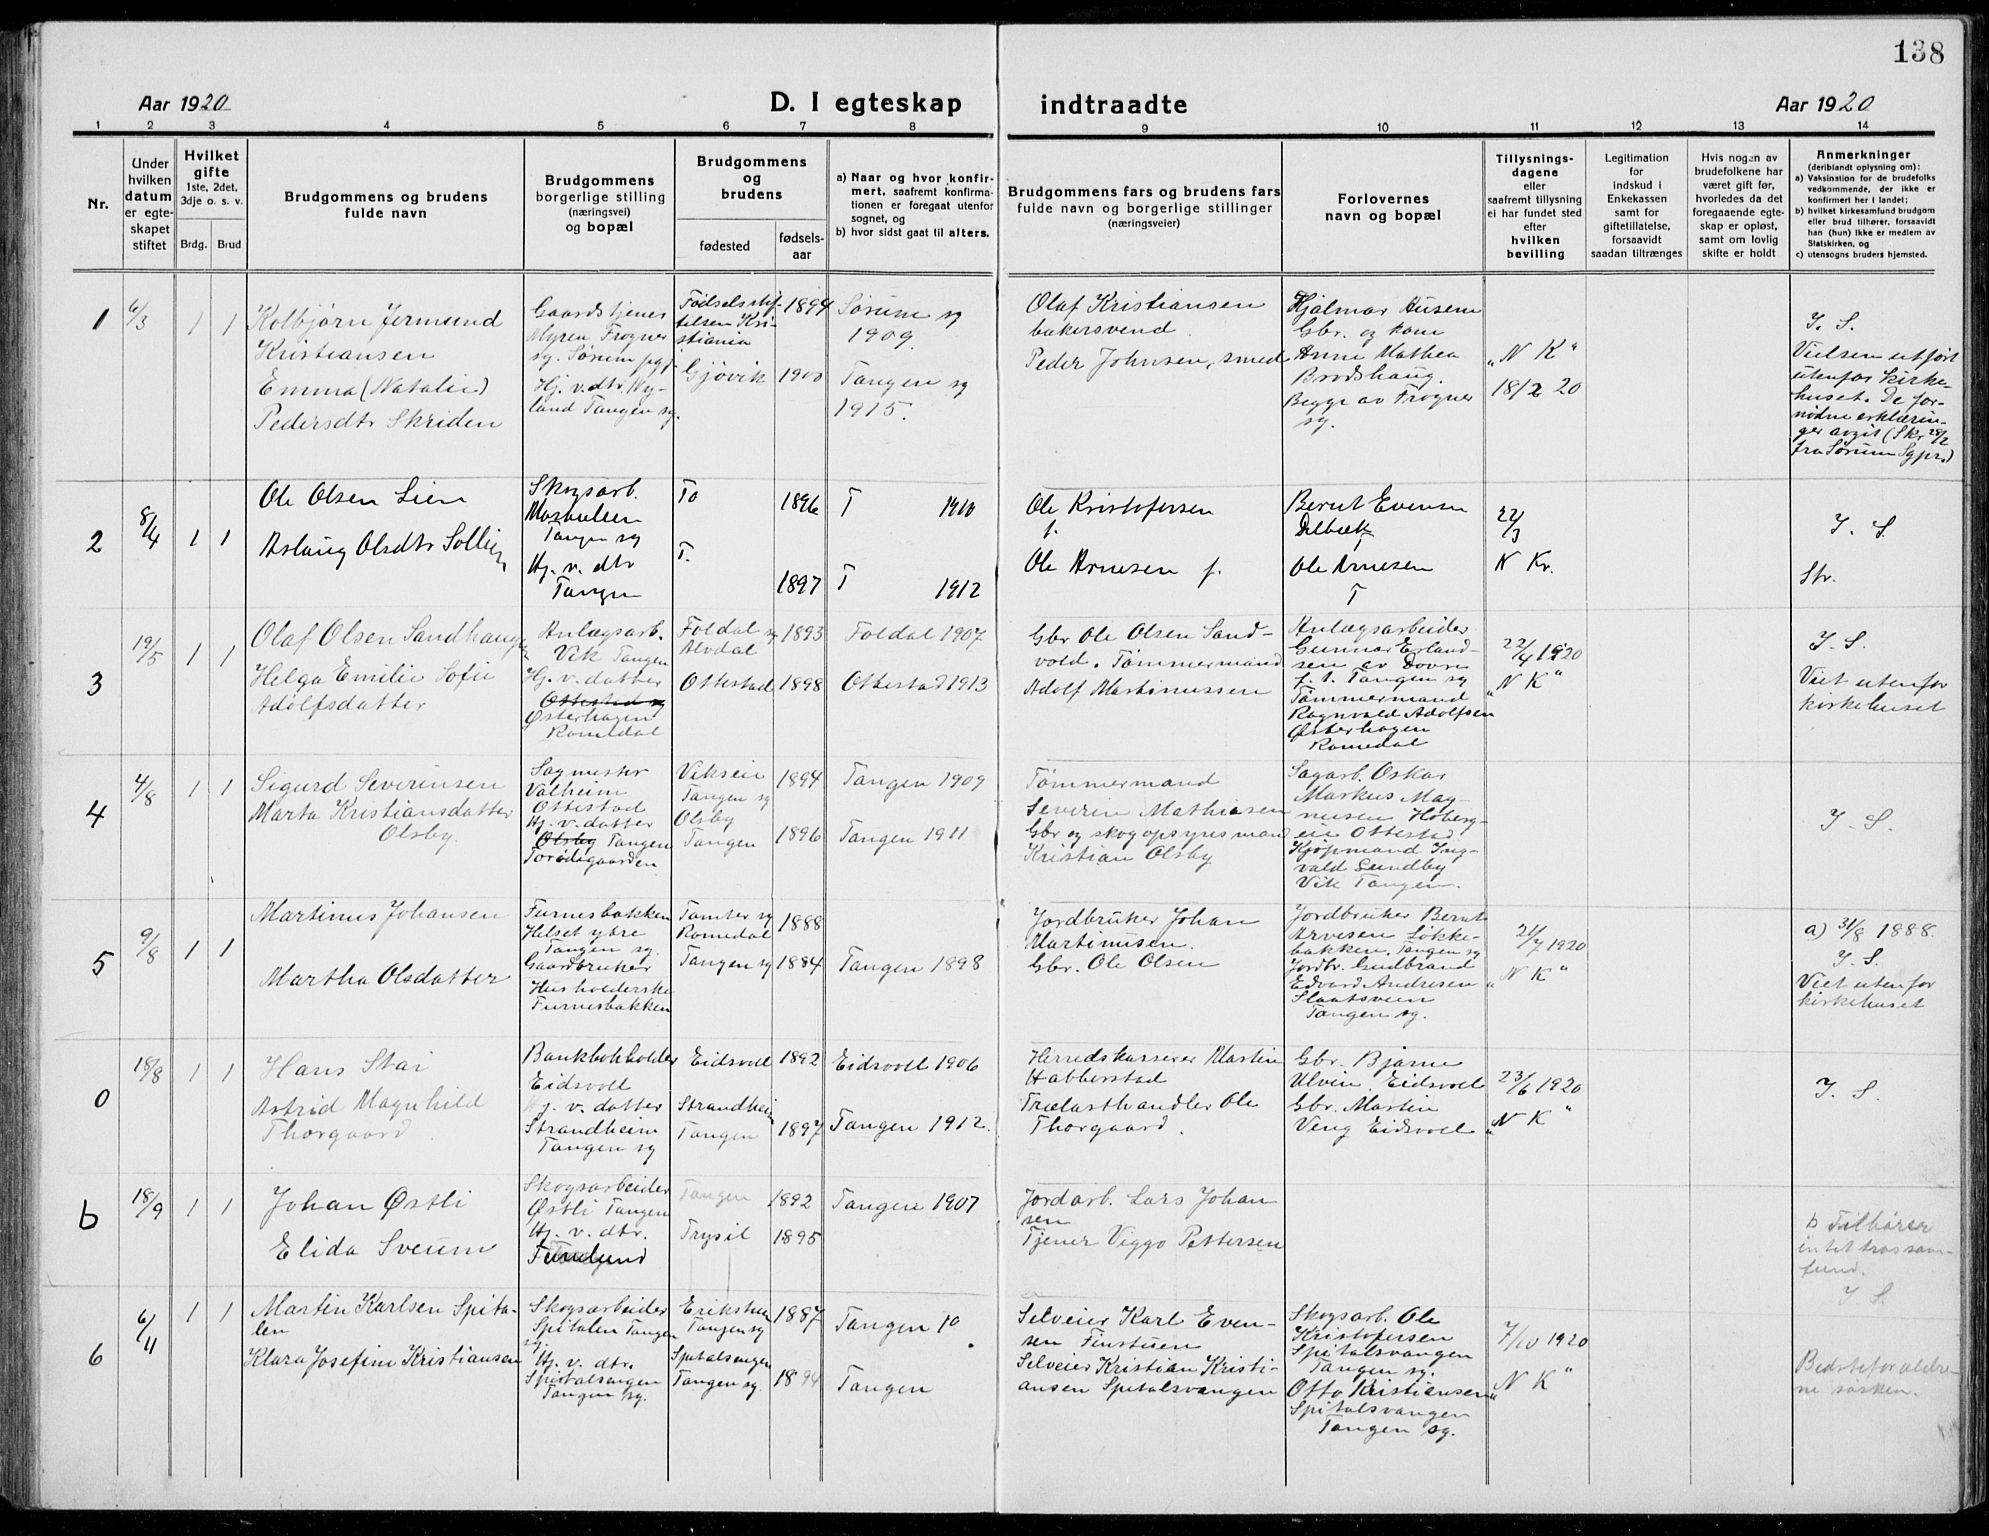 138
Aar 1920
D. I egteskap
indtraadte
Aar 1920
1 2 3 4 5 6 7 8 9 10 11 12 13 14
Nr.
Under
hvilken
datum
er egte-
skapet
stiftet
Hvilket
gifte
1ste, 2det,
3dje o. s. v.
Brdg. Brud
Brudgommens og brudens
fulde navn
Brudgommens
borgerlige stilling
(næringsvei)
og bopæl
Brudgommens
og
brudens
fødested
fødsels-
aar
a) Naar og hvor konfir-
mert, saafremt konfirma-
tionen er foregaat utenfor
sognet, og
b) hvor sidst gaat til alters.
Brudgommens fars og brudens fars
fulde navn og borgerlige stillinger
(næringsveier)
Forlovernes
navn og bopæl
Tillysnings-
dagene
eller
saafremt tillysning
ei har fundet sted
efter
hvilken
bevilling
Legitimation
for
indskud i
Enkekassen
samt for
giftetillatelse,
forsaavidt
saadan tiltrænges
Hvis nogen av
brudefolkene har
været gift før,
hvorledes da det
foregaaende egte-
skap er opløst,
samt om lovlig
skifte er holdt
Anmerkninger
(deriblandt oplysning om):
a) Vaksination for de brudefolks
vedkommende, der ikke er
konfirmert her i landet;
b) hvilket kirkesamfund brudgom
eller brud tilhører, forsaavidt
han (hun) ikke er medlem av
Statskirken, og
c) utensogns bruders hjemsted.
1
6/3
1 1
Kolbjørn Jermund
Kristiansen
Emma (Natalie)
Pedersdtr Skriden
Gaardstjener
Myren Frogner
sg. Sørum pgj.
Hj. v. dtr Ny-
land Tangen sg.
Fødselsstif-
telsen Kri-
stiania
Gjøvik
1894
1900
Sørum sg
1909.
Tangen sg
1915.
Olaf Kristiansen
bakersvend.
Peder Johnsen, smed
Hjalmar Husem
Gbr. og kone
Anne Mathea
Brodshaug.
Begge av Frogner
sg.
"N K"
18/2 20
I. S.
Vielsen utført
utenfor kirke-
huset. De for-
nødne erklærin-
ger avgit (Skr 28/2
fra Sørum Sgpr.)
2
8/4
1 1
Ole Olsen Lien
Aslaug Olsdtr Sollien
Skogsarb.
Tangen sg
Hj. v. dtr
Tangen
To
T.
1896
1897
T 1910
T 1912
Ole Kristofersen
f.
Ole Arnesen f.
Bernt Evensen
Delbæk
T
Ole Arnesen
T
22/3
N Kr.
I. S.
Str.
3
19/5
1 1
Olaf Olsen Sandhaugen
Helga Emilie Sofie
Adolfsdatter
Anlægsarb.
Vik Tangen
Hj. v. datter
Ottestad sg
Østerhagen
Romedal
Foldal sg
Alvdal
Ottestad
1893
1898
Foldal 1907
Ottestad 1913
Gbr Ole Olsen Sand-
vold. Tømmermand
Adolf Martinussen
Anlægsarbeider
Gunnar Erland-
sen av Dovre
f. t. Tangen sg
Tømmermand
Ragnvald Adolfsen
Østerhagen
Romedal
22/4 1920
"N K"
I. S.
Viet utenfor
kirkehuset
4
4/8
1 1
Sigurd Severinsen
Marta Kristiansdatter
Olsby.
Sagmester
Valheim
Ottestad
Hj. v. datter
Olsby Tangen
Torødegaarden
Vikseie
Tangen sg
Olsby
Tangen
1894
1896
Tangen 1909
Tangen 1911
Tømmermand
Severin Mathiasen
Gbr og skogopsynsmand
Kristian Olsby
Sagarb. Oskar
Markus Mag-
nusen Hoberg-
en Ottestad
Kjøpmand Ing-
vald Sundby
Vik Tangen.
I. S.
5
9/8
1 1
Martinus Johansen
Martha Olsdatter
Furnesbakken
Helset ytre
Tangen sg.
Gaardbruker
Husholderske
Furnesbakken
Tomter sg
Romedal
Tangen sg
1888
1884
Tangen 1898
Jordbruker Johan
Martinusen.
Gbr. Ole Olsen
Jordbruker Bernt
Arvesen Løkke-
bakken, Tangen sg
Jordbr. Gudbrand
Edvard Andresen
Slaatsveen
Tangen sg.
21/7 1920
"N K"
a) 31/8 1888.
I. S.
Viet utenfor
kirkehuset
0
18/8
1 1
Hans Stai
Astrid Magnhild
Thorgaard
Bankbokholder
Eidsvoll
Hj. v. datter
Strandheim
Tangen sg
Eidsvoll
Strandheim
Tangen
1892
1897
Eidsvoll 1906
Tangen 1912.
Herredskasserer Martin
Habberstad
Trælasthandler Ole
Thorgaard.
Gbr. Bjarne
Ulvin, Eidsvoll
Gbr. Martin
Veng Eidsvoll
23/6 1920
"N K"
I. S.
b
18/9
1 1
Johan Østli
Elida Sveum
Skogsarbeider
Østli Tangen
Hj. v. dtr.
Tangen
Trysil
1892
1895
Tangen 1907
Jordarb. Lars Johan
sen
Tjener Viggo Pettersen
b) Tilhører
intet trossam-
fund.
I S.
6
6/11
1 1
Martin Karlsen Spita-
len
Klara Josefine Kristiansen
Skogsarbeider
Spitalen Tangen
sg.
Hj. v. dtr.
Spitalsangen
Tangen sg.
Erikstun
Tangen sg
Spitalsangen
Tangen sg.
1887
1894
Tangen 10
Tangen
Selveier Karl Even-
sen Finstuen
Selveier Kristian Kristi-
ansen Spitalsvangen
Skogsarb. Ole
Kristofersen
Spitalsvangen
Tangen sg.
Otto Kristiansen
Spitalsvangen
Tangen sg.
7/10 1920
"N K"
Bedsteforældre-
ne søsken.